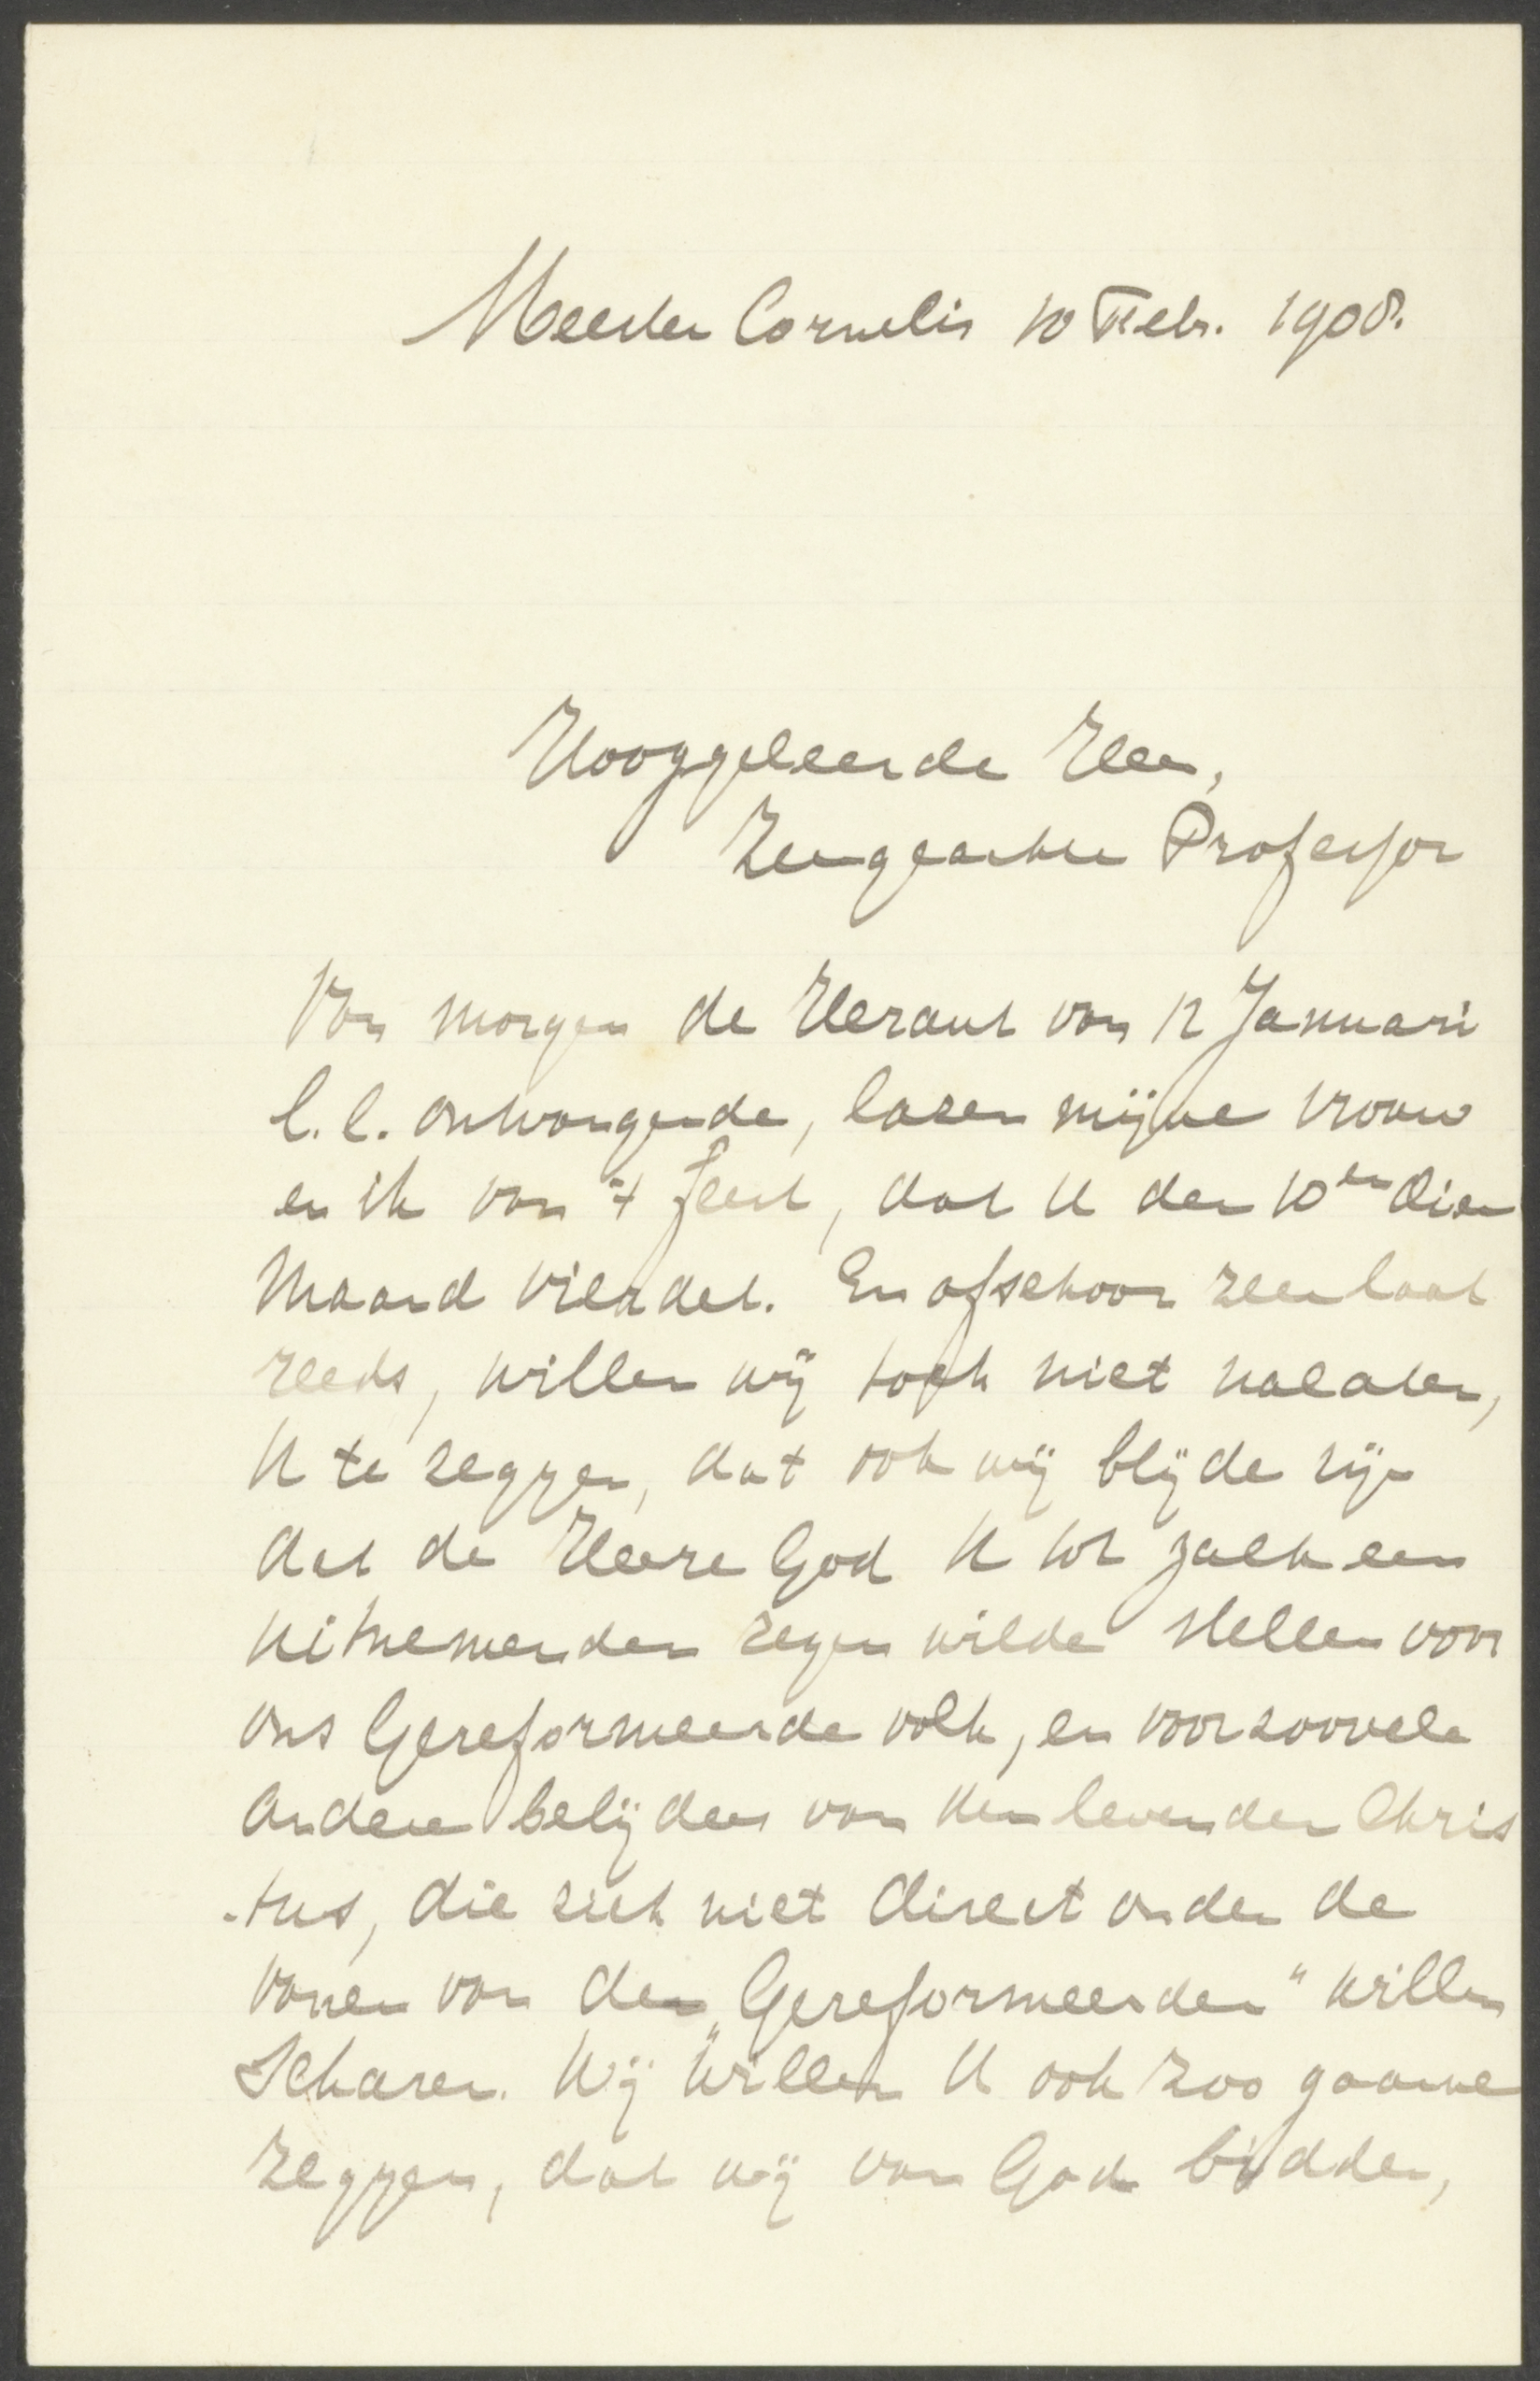 Meester Cornelis 10 Febr. 1908.
Hooggeleerde Heer,
Zeergeachte Professor
Van morgen de Heraut van 12 Januari
l.l. ontvangende, lazen mijne vrouw
en ik van 't feest, dat U den 10en dier
maand vierdet. En ofschoon zeer laat
reeds, willen wij toch niet nalaten,
U te zeggen, dat ook wij blijde zijn
dat de Heere God U tot zulk een
uitnemenden zegen wilde stellen voor
ons Gereformeerde volk, en voor zoovele
andere belijders van den levenden Chris
-tus, die zich niet direct onder de
vanen van de „Gereformeerden" willen
scharen. Wij willen U ook zoo gaarne
zeggen, dat wij van God bidden,